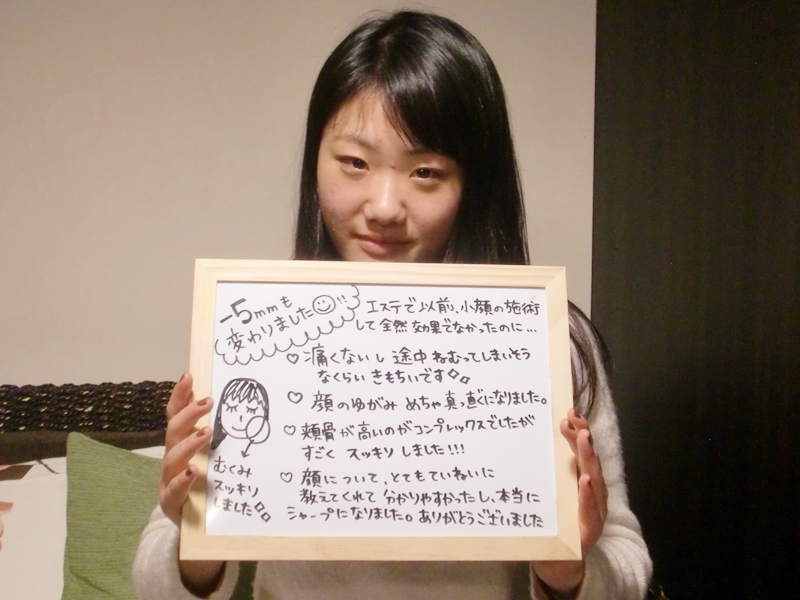 -5mmも
変わりました!!
エステで以前、小顔の施術
して全然効果でなかったのに…
♡痛くないし途中ねむってしまいそう
なくらいきもちいです
♡顔のゆがみめちゃ真っ直ぐになりました。
♡頬骨が高いのがコンプレックスでしたが
すごくスッキリしました!!!
♡顔について、とてもていねいに
教えてくれて分かりやすかったし、本当に
シャープになりました。ありがとうございました
むくみ
スッキリ
しました